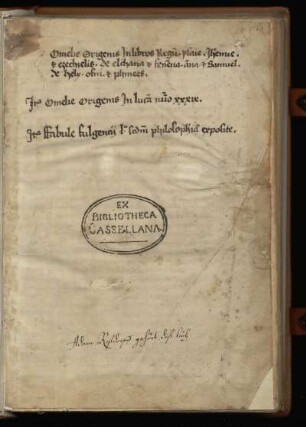 Omelie Origenis In libros Regū. ysaie. Iheremie.
⁊ ezechielis. de elchana ⁊ fenena. āna ⁊ Samuel.
de hely. ofni. ⁊ phynees.
Itē Omelie Origenis In lucā nūo xxxix.
Itē ffabule fulgencij scdm̄ philosophiā exposite.
EX
BIBLIOTHECA
CASSELLANA
Adam gehört diß buch